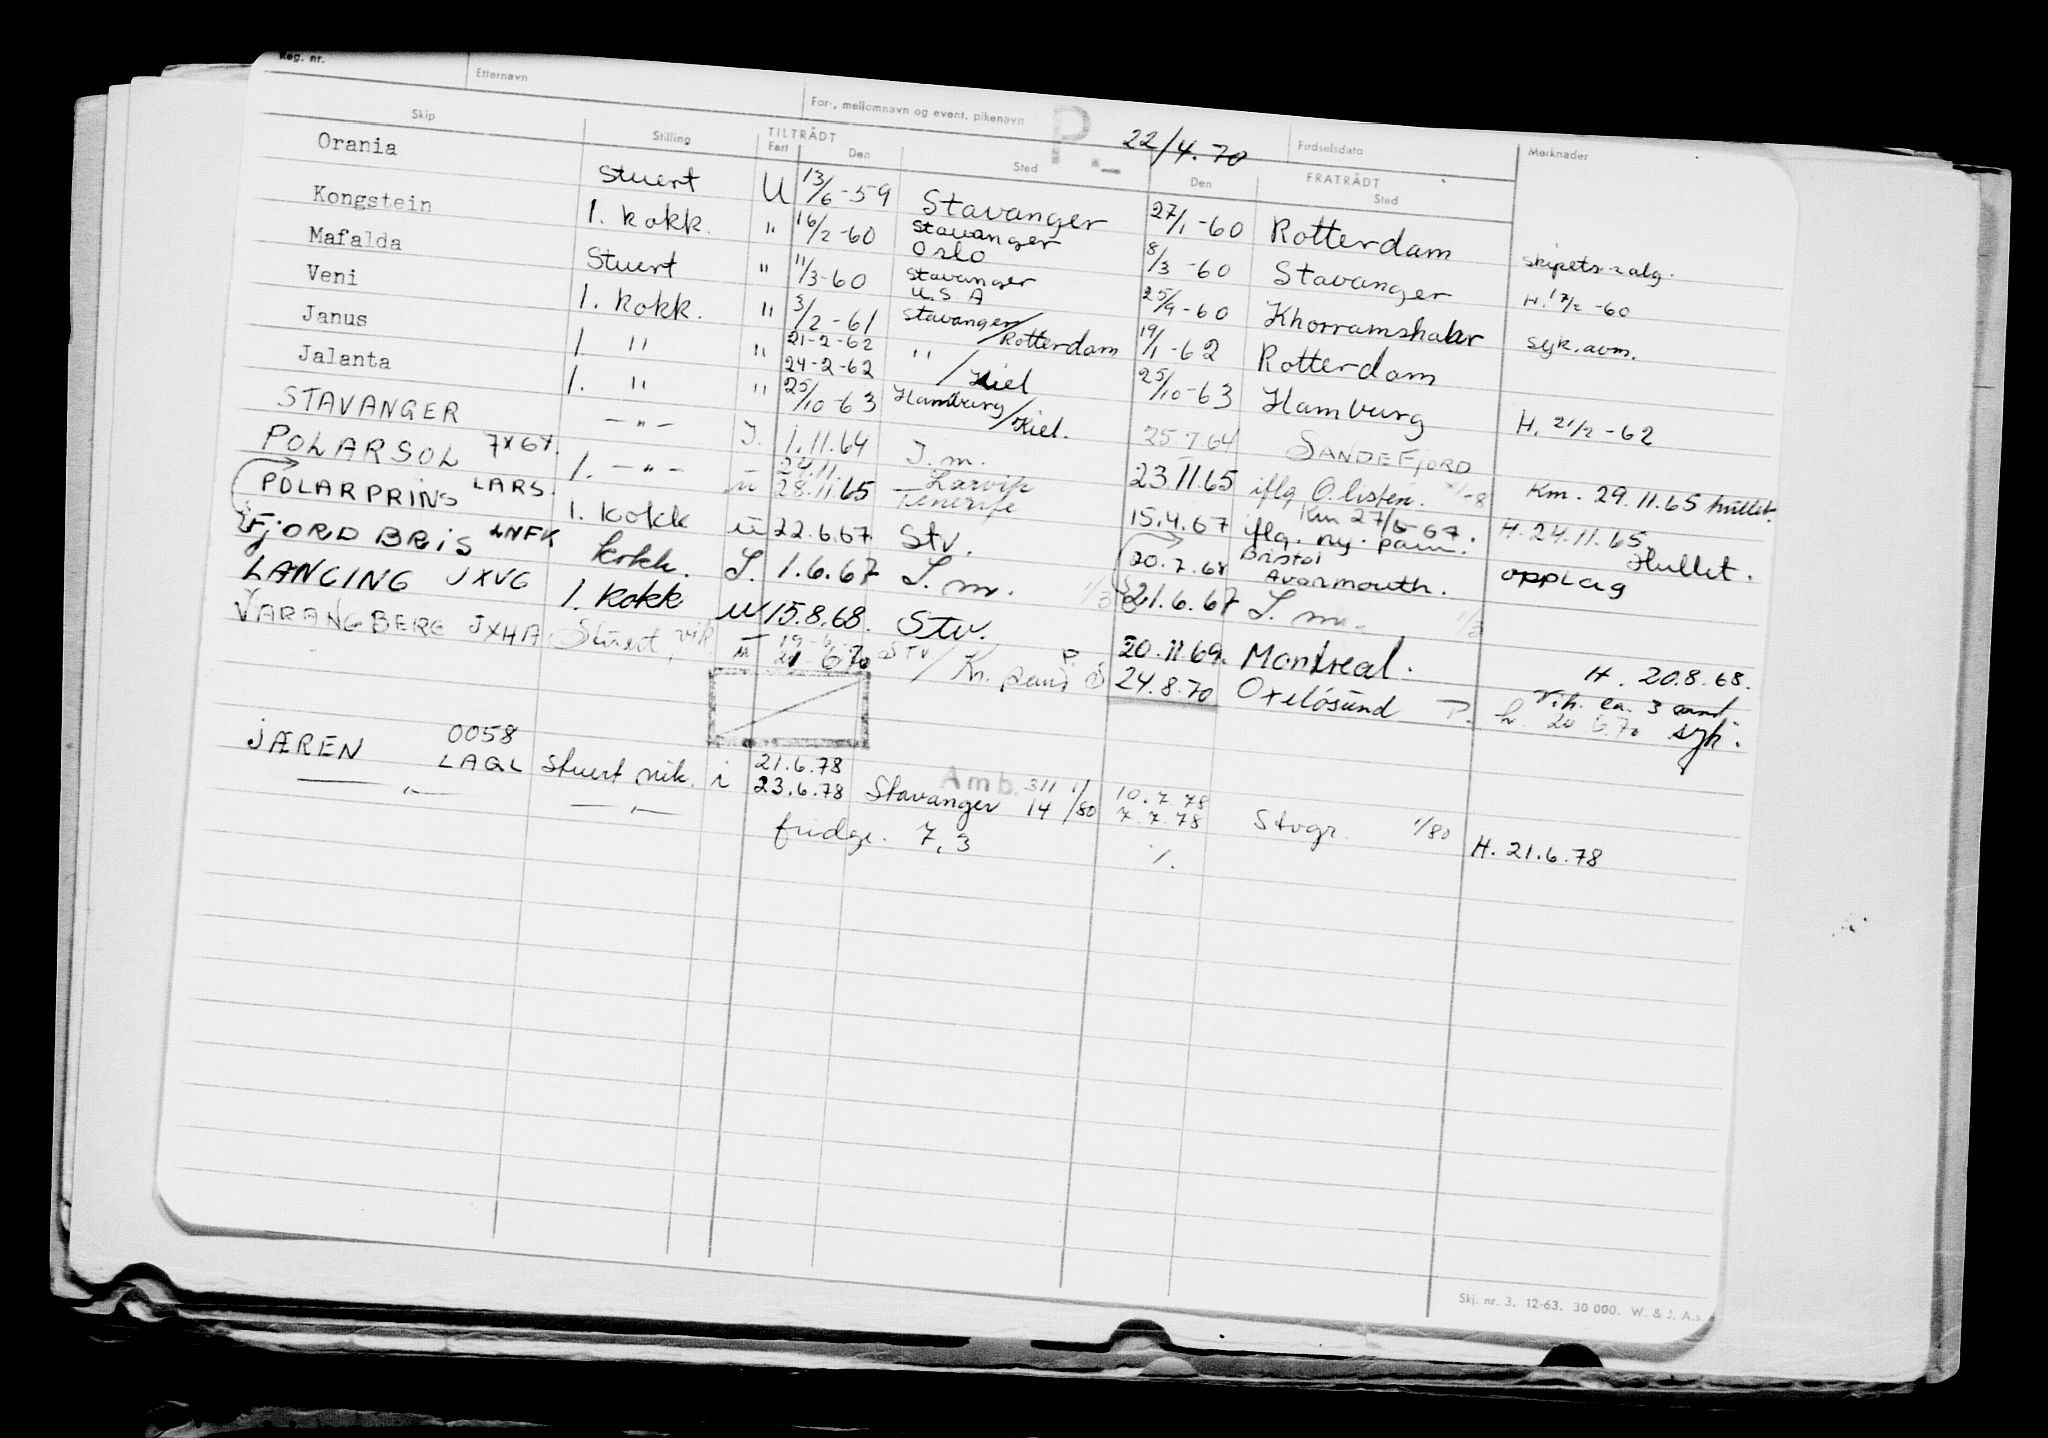 Reg. nr. Etternavn For-, mellomnavn og event. pikenavn P.- 22/4.70 Fødselsdato Merknader
Skip Stilling TILTRÅDT FRATRÅDT
Fart Den Sted Den Sted
Orania Stuert U 13/6-59 Stavanger 27/1-60 Rotterdam skipets salg.
Kongstein 1. kokk. " 16/2-60 Stavanger Oslo 8/3-60 Stavanger H. 17/2-60
Mafalda Stuert " 11/3-60 Stavanger U.S.A 25/9-60 Khorramshahr syk.avm.
Veni 1. kokk. " 3/2-61 Stavanger/Rotterdam 19/1-62 Rotterdam
Janus 1. " " 21-2-62 24-2-62 " / Kiel 25/10-63 Hamburg H. 21/2-62
Jalanta 1. " " 25/10-63 Hamburg/Kiel. 25.7.64 SANDEFJORD
STAVANGER -"- J. 1.11.64 J.m. 23.11.65 iflg O.listen. Km. 29.11.65 hullet.
POLARSOL 7X6Y. 1. -"- 24.11. 28.11.65 Larvik Tenerife 15.4.67 Km 27/6-67. iflg. ny. H.24.11.65. Hullet.
POLARPRINS LARS. 1. kokk u 22.6.67 Stv. 20.7.68 Bristol Avonmouth. opplag
FJORD BRIS LNFK kokk. J. 1.6.67 J.m. 1/3 21.6.67 J.m. 1/3
LANGING JXVG 1. kokk u 15.8.68. Stv. 20.11.69. Montreal. H. 20.8.68.
VARANGBERG JXHA Stuert, vik. u 19-6 21-6.70 STV / P. 24.8.70 Oxeløsund P. v.h. ca. 3 h. 20 6.70 syk.
JÆREN 0058 LAQL Stuert vik. i 21.6.78 23.6.78 Stavanger Amb. 311 14 1/80 10.7.78 7.7.78 Stvgr. 1/80 H. 21.6.78
-"- -"- fridge. 7,3 %.
Skj. nr. 3. 12-63. 30 000. W. & J. A.s.